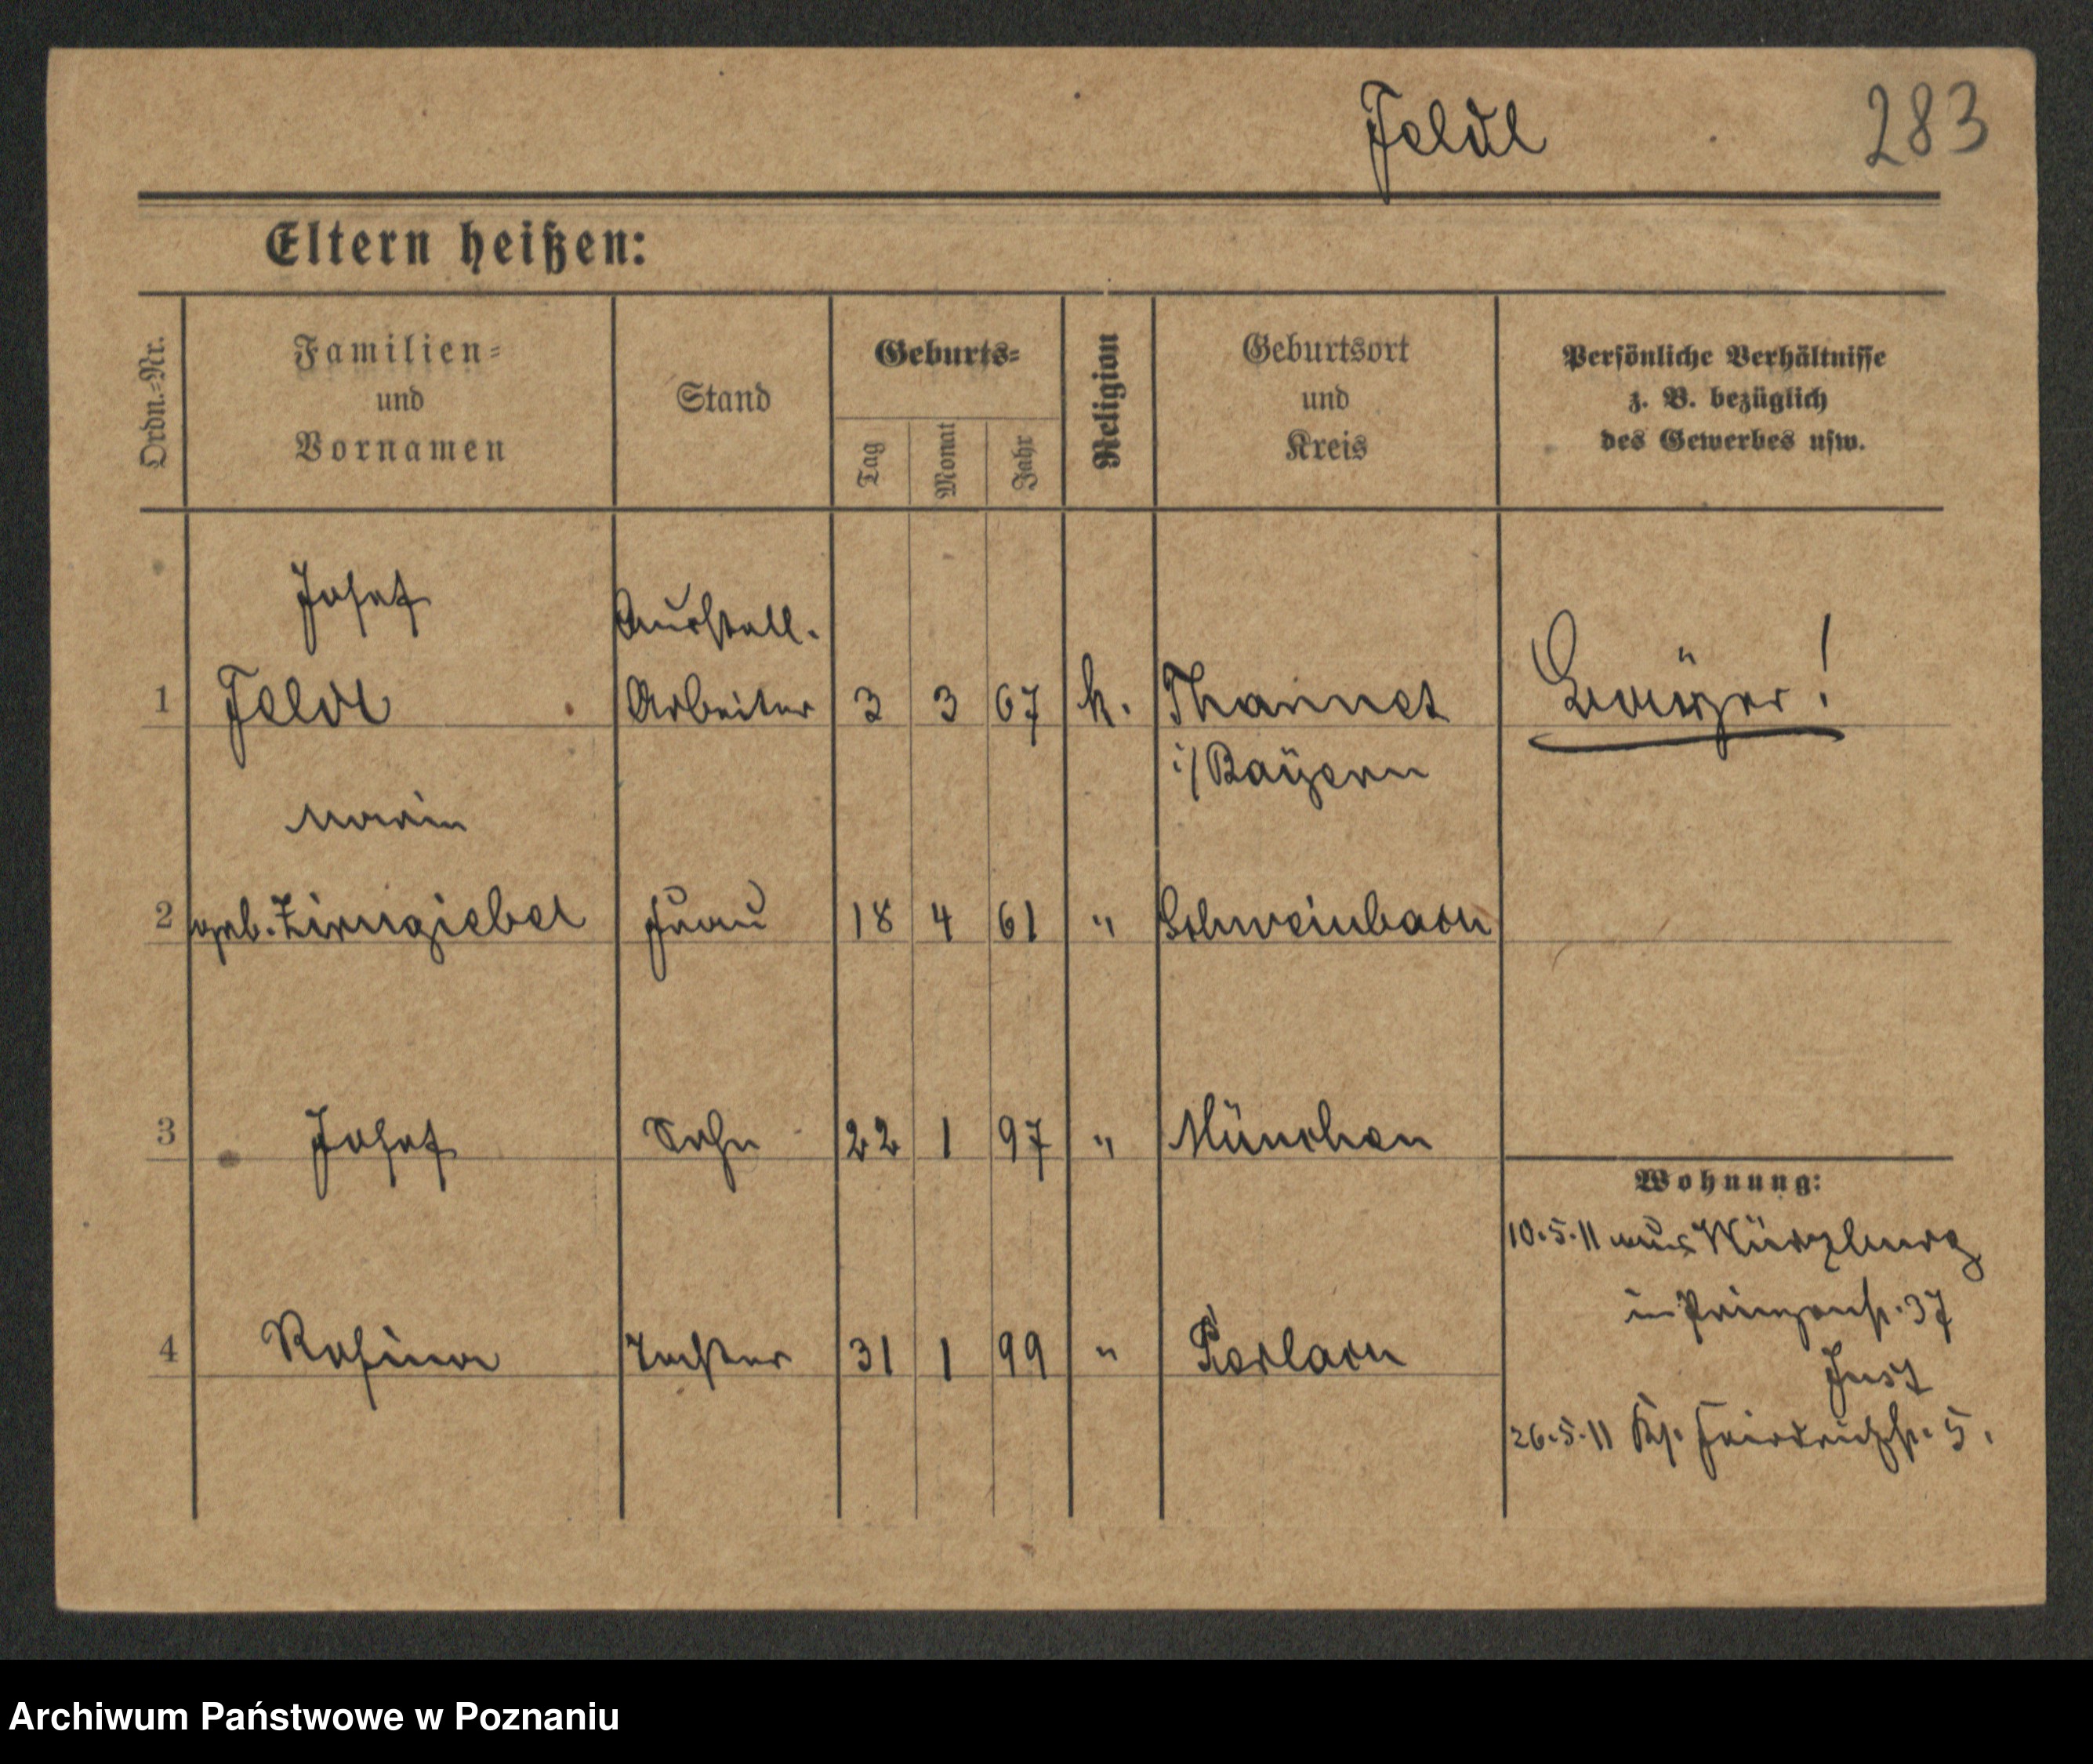 Feldl 283
Eltern heißen:
Ordn.-Nr.
Familien-
und
Vornamen
Stand
Geburts-
Tag
Monat
Jahr
Religion
Geburtsort
und
Kreis
Persönliche Verhältnisse
z. B. bezüglich
des Gewerbes usw.
Josef
Ausstell.
1 Feldl Arbeiter 3 3 67 k. Thannet
i/ Bayern
Maria
2 geb. Zirngiebel Frau 18 4 61 " Schweinbach
3 Josef Sohn 22 1 97 " München
Wohnung:
10.5.11 aus Würzburg
in Prinzenst. 37
4 Rosina Tochter 31 1 99 " Perlach
Just
26.5.11 Friedrichst. 5.
Archiwum Państwowe w Poznaniu